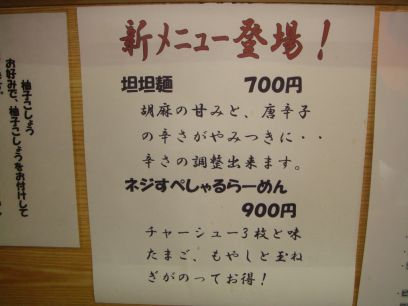 新メニュー登場！
坦坦麺 700円
胡麻の甘みと、唐辛子
の辛さがやみつきに・・
辛さの調整出来ます。
ネジすぺしゃるらーめん
900円
チャーシュー3枚と味
たまご、もやしと玉ね
ぎがのってお得！
柚子こしょう
お好みで、柚子こしょうをお付けして